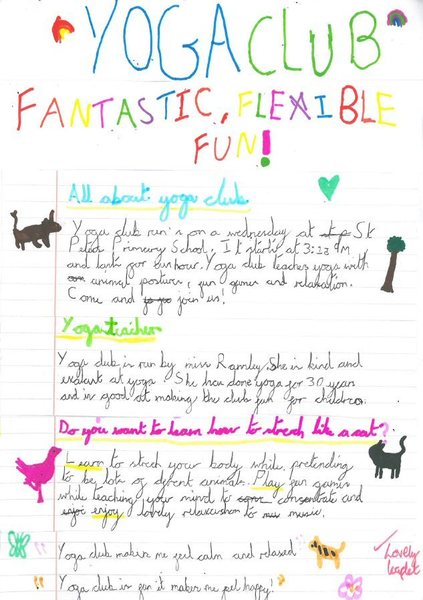 YOGA CLUB
FANTASTIC, FLEXIBLE
FUN!
All about yoga club
Yoga club run's on a wednesday at St
Primary School. It starts at 3:15 PM
and lasts for an hour. Yoga club teaches yoga with
animal posture, fun games and relaxation.
Come and join us!
Yoga teacher
Yoga club is run by miss She is kind and
at yoga She has done yoga for 30 years
and is good at making the club fun for children.
Do you want to learn how to strech like a cat?
Learn to strech your body while pretending
to be lots of animals. Play fun games
while teaching your mind to and
enjoy lovely to music.
Yoga club makes me feel calm and relaxed
Yoga club is fun it makes me feel happy!
Lovely
leaflet